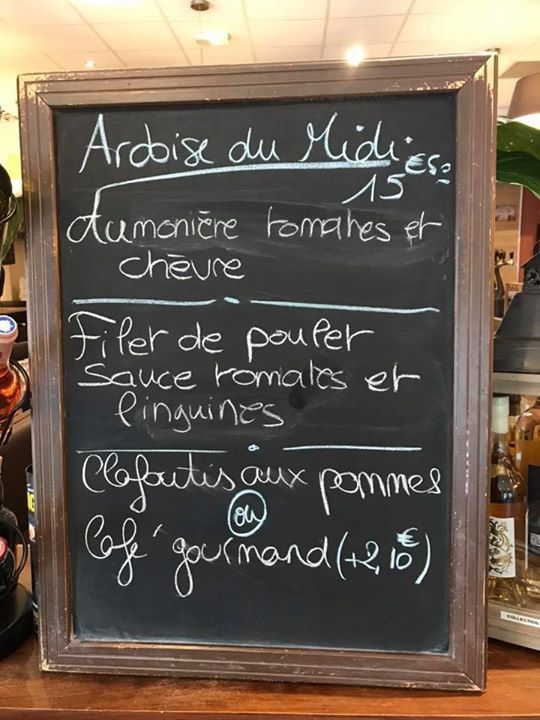 Ardoise du Midi
15€50
Aumonière tomates et
chèvre
Filet de poulet
sauce tomates et
linguines
Clafoutis aux pommes
ou
Café gourmand (+2,10€)
COLLECTION